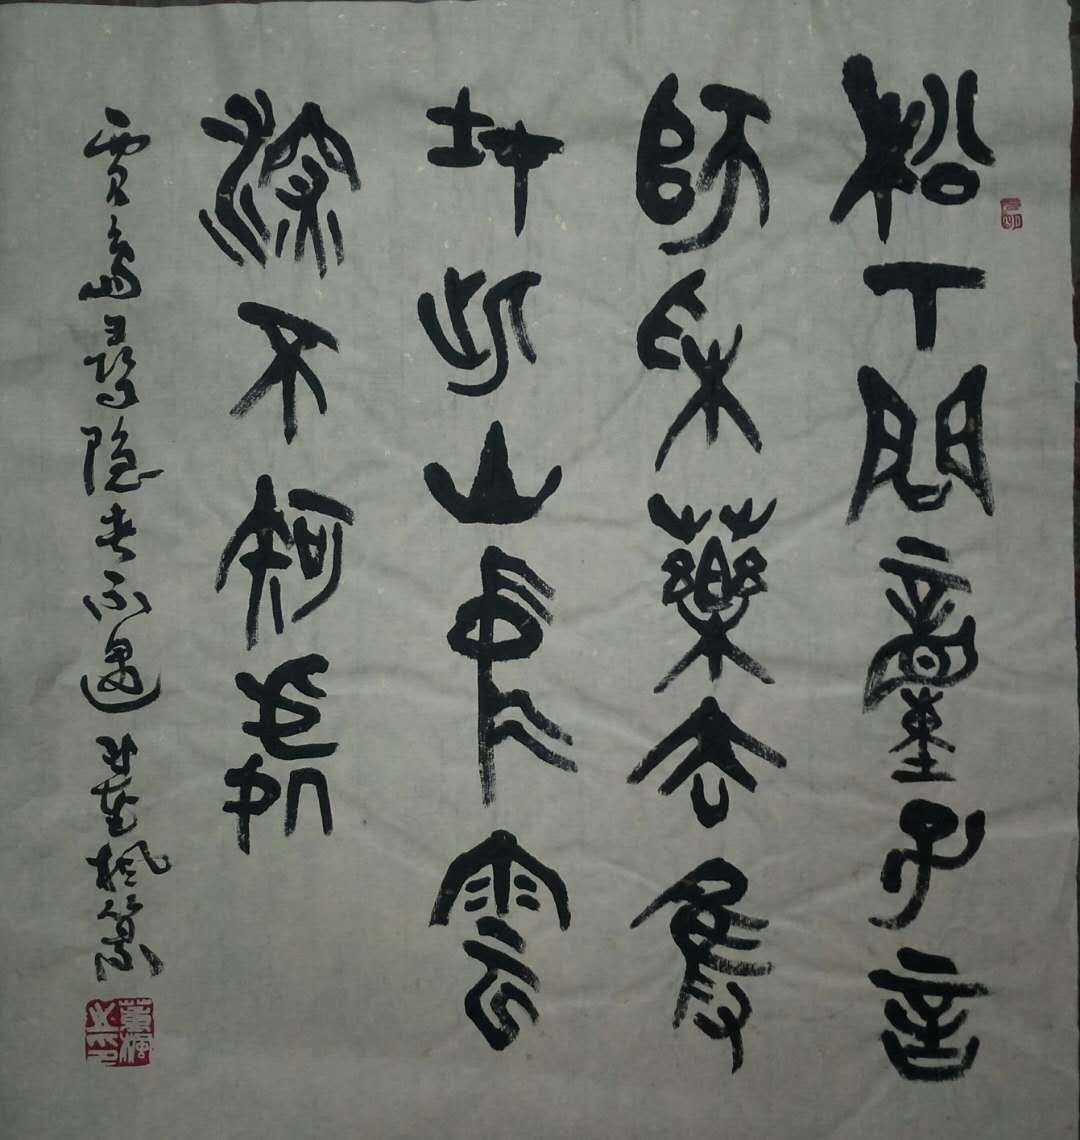 松下問童子言
師采藥去隻
在此山中雲
深不知處
賈島尋隐者不遇 董枫篆